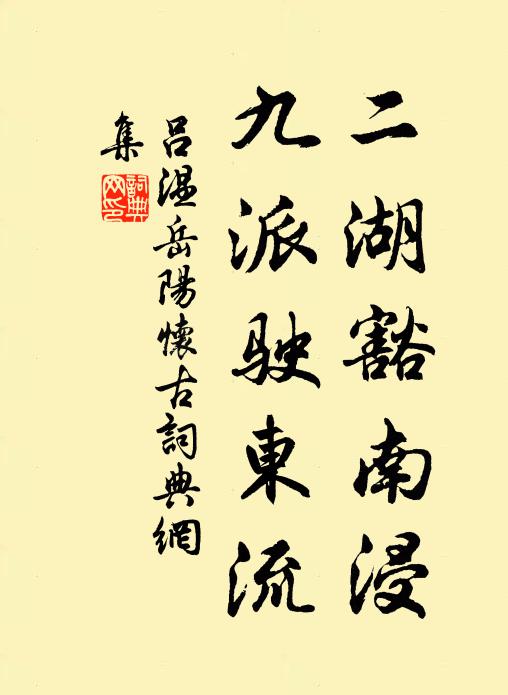 二湖豁南浸
九派駛東流
吕溫岳陽懷古詞典網
集
詞典
网印